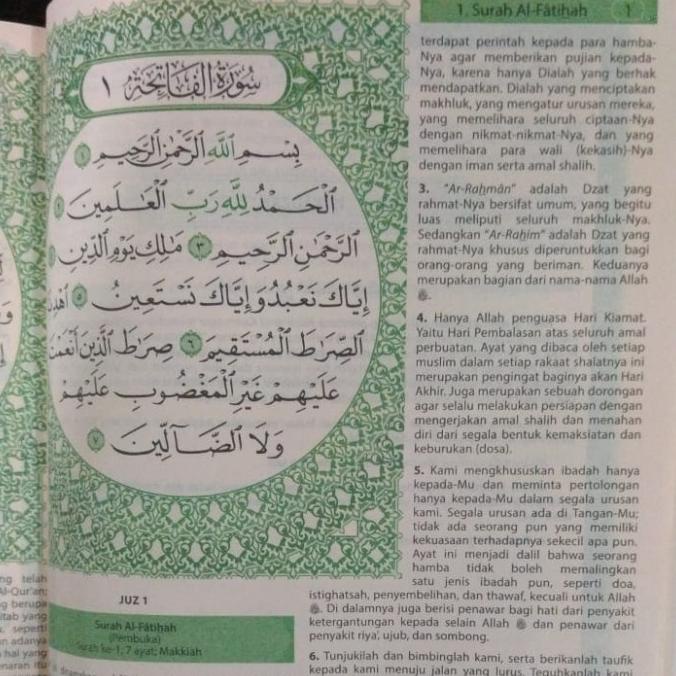 سُورَةُ الْفَاتِحَةِ ١
بِسْمِ اللَّهِ الرَّحْمَٰنِ الرَّحِيمِ ١
الْحَمْدُ لِلَّهِ رَبِّ الْعَالَمِينَ
الرَّحْمَٰنِ الرَّحِيمِ ٣ مَالِكِ يَوْمِ الدِّينِ
إِيَّاكَ نَعْبُدُ وَإِيَّاكَ نَسْتَعِينُ ٥
الصِّرَاطَ الْمُسْتَقِيمَ ٦ صِرَاطَ الَّذِينَ أَنْعَمْتَ
عَلَيْهِمْ غَيْرِ الْمَغْضُوبِ عَلَيْهِمْ
وَلَا الضَّالِّينَ ٧
JUZ 1
Surah Al-Fâtiḥah
(Pembuka)
Surah ke-1, 7 ayat; Makkiah
1. Surah Al-Fâtiḥah 1
terdapat perintah kepada para hamba-
Nya agar memberikan pujian kepada-
Nya, karena hanya Dialah yang berhak
mendapatkan. Dialah yang menciptakan
makhluk, yang mengatur urusan mereka,
yang memelihara seluruh ciptaan-Nya
dengan nikmat-nikmat-Nya, dan yang
memelihara para wali (kekasih)-Nya
dengan iman serta amal shalih.
3. "Ar-Raḥmân" adalah Dzat yang
rahmat-Nya bersifat umum, yang begitu
luas meliputi seluruh makhluk-Nya.
Sedangkan "Ar-Raḥîm" adalah Dzat yang
rahmat-Nya khusus diperuntukkan bagi
orang-orang yang beriman. Keduanya
merupakan bagian dari nama-nama Allah
.
4. Hanya Allah penguasa Hari Kiamat.
Yaitu Hari Pembalasan atas seluruh amal
perbuatan. Ayat yang dibaca oleh setiap
muslim dalam setiap rakaat shalatnya ini
merupakan pengingat baginya akan Hari
Akhir. Juga merupakan sebuah dorongan
agar selalu melakukan persiapan dengan
mengerjakan amal shalih dan menahan
diri dari segala bentuk kemaksiatan dan
keburukan (dosa).
5. Kami mengkhususkan ibadah hanya
kepada-Mu dan meminta pertolongan
hanya kepada-Mu dalam segala urusan
kami. Segala urusan ada di Tangan-Mu;
tidak ada seorang pun yang memiliki
kekuasaan terhadapnya sekecil apa pun.
Ayat ini menjadi dalil bahwa seorang
hamba tidak boleh memalingkan
satu jenis ibadah pun, seperti doa,
istighatsah, penyembelihan, dan thawaf, kecuali untuk Allah
. Di dalamnya juga berisi penawar bagi hati dari penyakit
ketergantungan kepada selain Allah dan penawar dari
penyakit riya', ujub, dan sombong.
6. Tunjukilah dan bimbinglah kami, serta berikanlah taufik
kepada kami menuju jalan yang lurus. Teguhkanlah kami